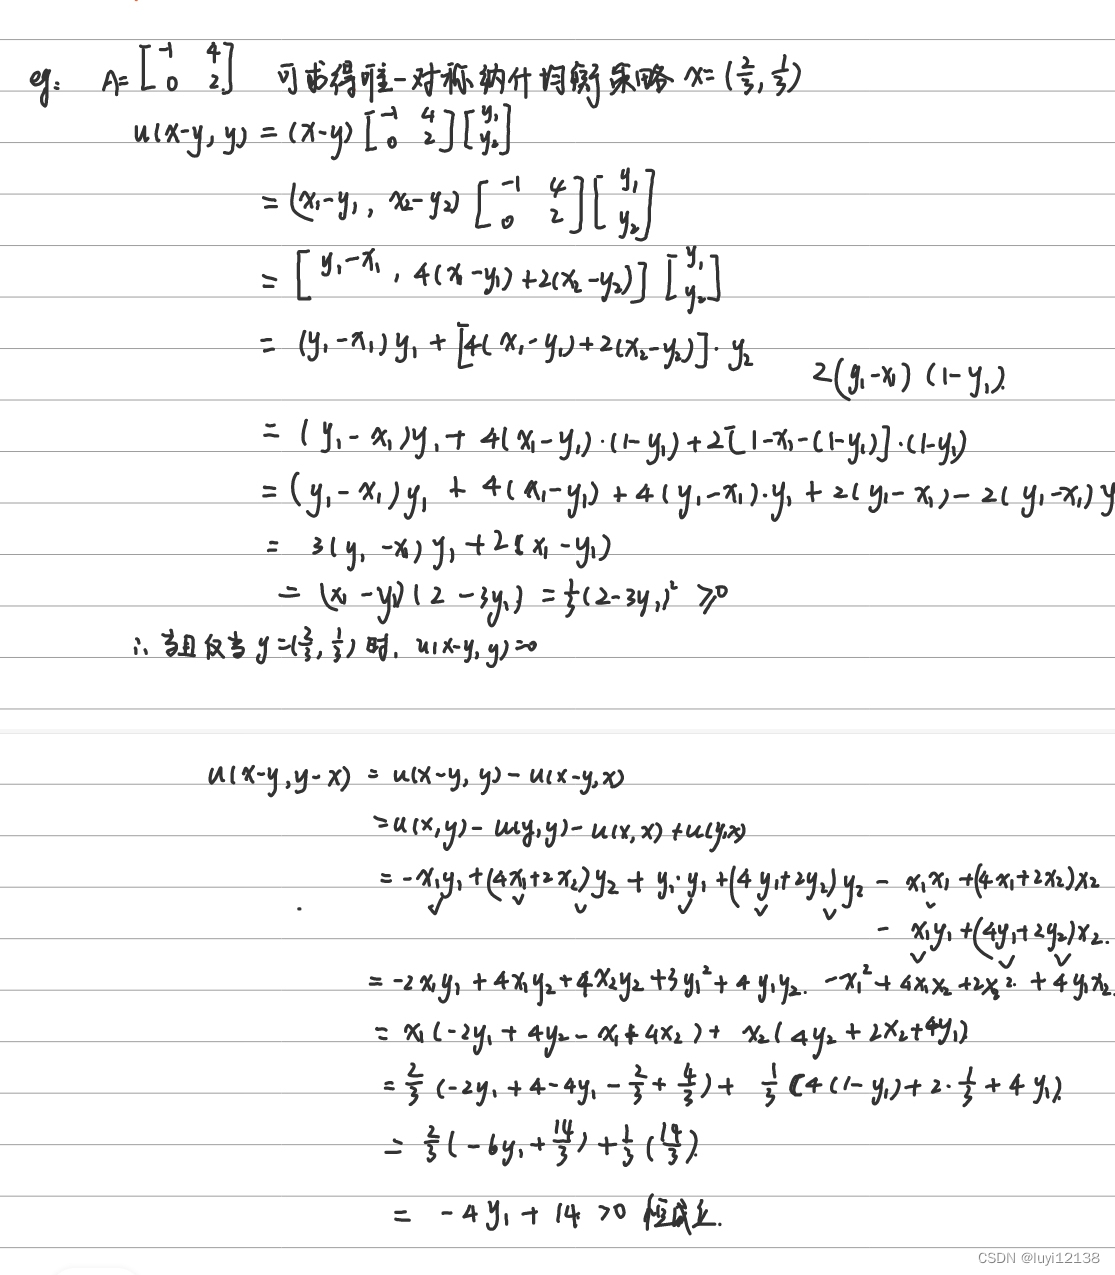 eg: A=[-1 4; 0 2] 可求得唯一对称纳什均衡策略 x=(2/3, 1/3)
u(x-y, y) = (x-y)[-1 4; 0 2][y₁; y₂]
= (x₁-y₁, x₂-y₂)[-1 4; 0 2][y₁; y₂]
= [y₁-x₁, 4(x₁-y₁)+2(x₂-y₂)][y₁; y₂]
= (y₁-x₁)y₁+[4(x₁-y₁)+2(x₂-y₂)]·y₂
2(y₁-x₁)(1-y₁).
= (y₁-x₁)y₁+4(x₁-y₁)·(1-y₁)+2[1-x₁-(1-y₁)]·(1-y₁)
= (y₁-x₁)y₁+4(x₁-y₁)+4(y₁-x₁)·y₁+2(y₁-x₁)-2(y₁-x₁)y
= 3(y₁-x₁)y₁+2(x₁-y₁)
= (x₁-y₁)(2-3y₁) = 1/3(2-3y₁)² ≥0
∴ 当且仅当 y=(2/3, 1/3) 时, u(x-y, y)=0
u(x-y, y-x) = u(x-y, y)-u(x-y, x)
= u(x, y)-u(y, y)-u(x, x)+u(y, x)
= -x₁y₁+(4x₁+2x₂)y₂+y₁·y₁+(4y₁+2y₂)y₂-x₁x₁+(4x₁+2x₂)x₂
-x₁y₁+(4y₁+2y₂)x₂.
= -2x₁y₁+4x₁y₂+4x₂y₂+3y₁²+4y₁y₂.-x₁²+4x₁x₂+2x₂²+4y₁x₂.
= x₁(-2y₁+4y₂-x₁+4x₂)+x₂(4y₂+2x₂+4y₁)
= 2/3(-2y₁+4-4y₁-2/3+4/3)+1/3(4(1-y₁)+2·1/3+4y₁).
= 2/3(-6y₁+14/3)+1/3(14/3).
= -4y₁+14 >0 恒成立.
CSDN @luyi12138